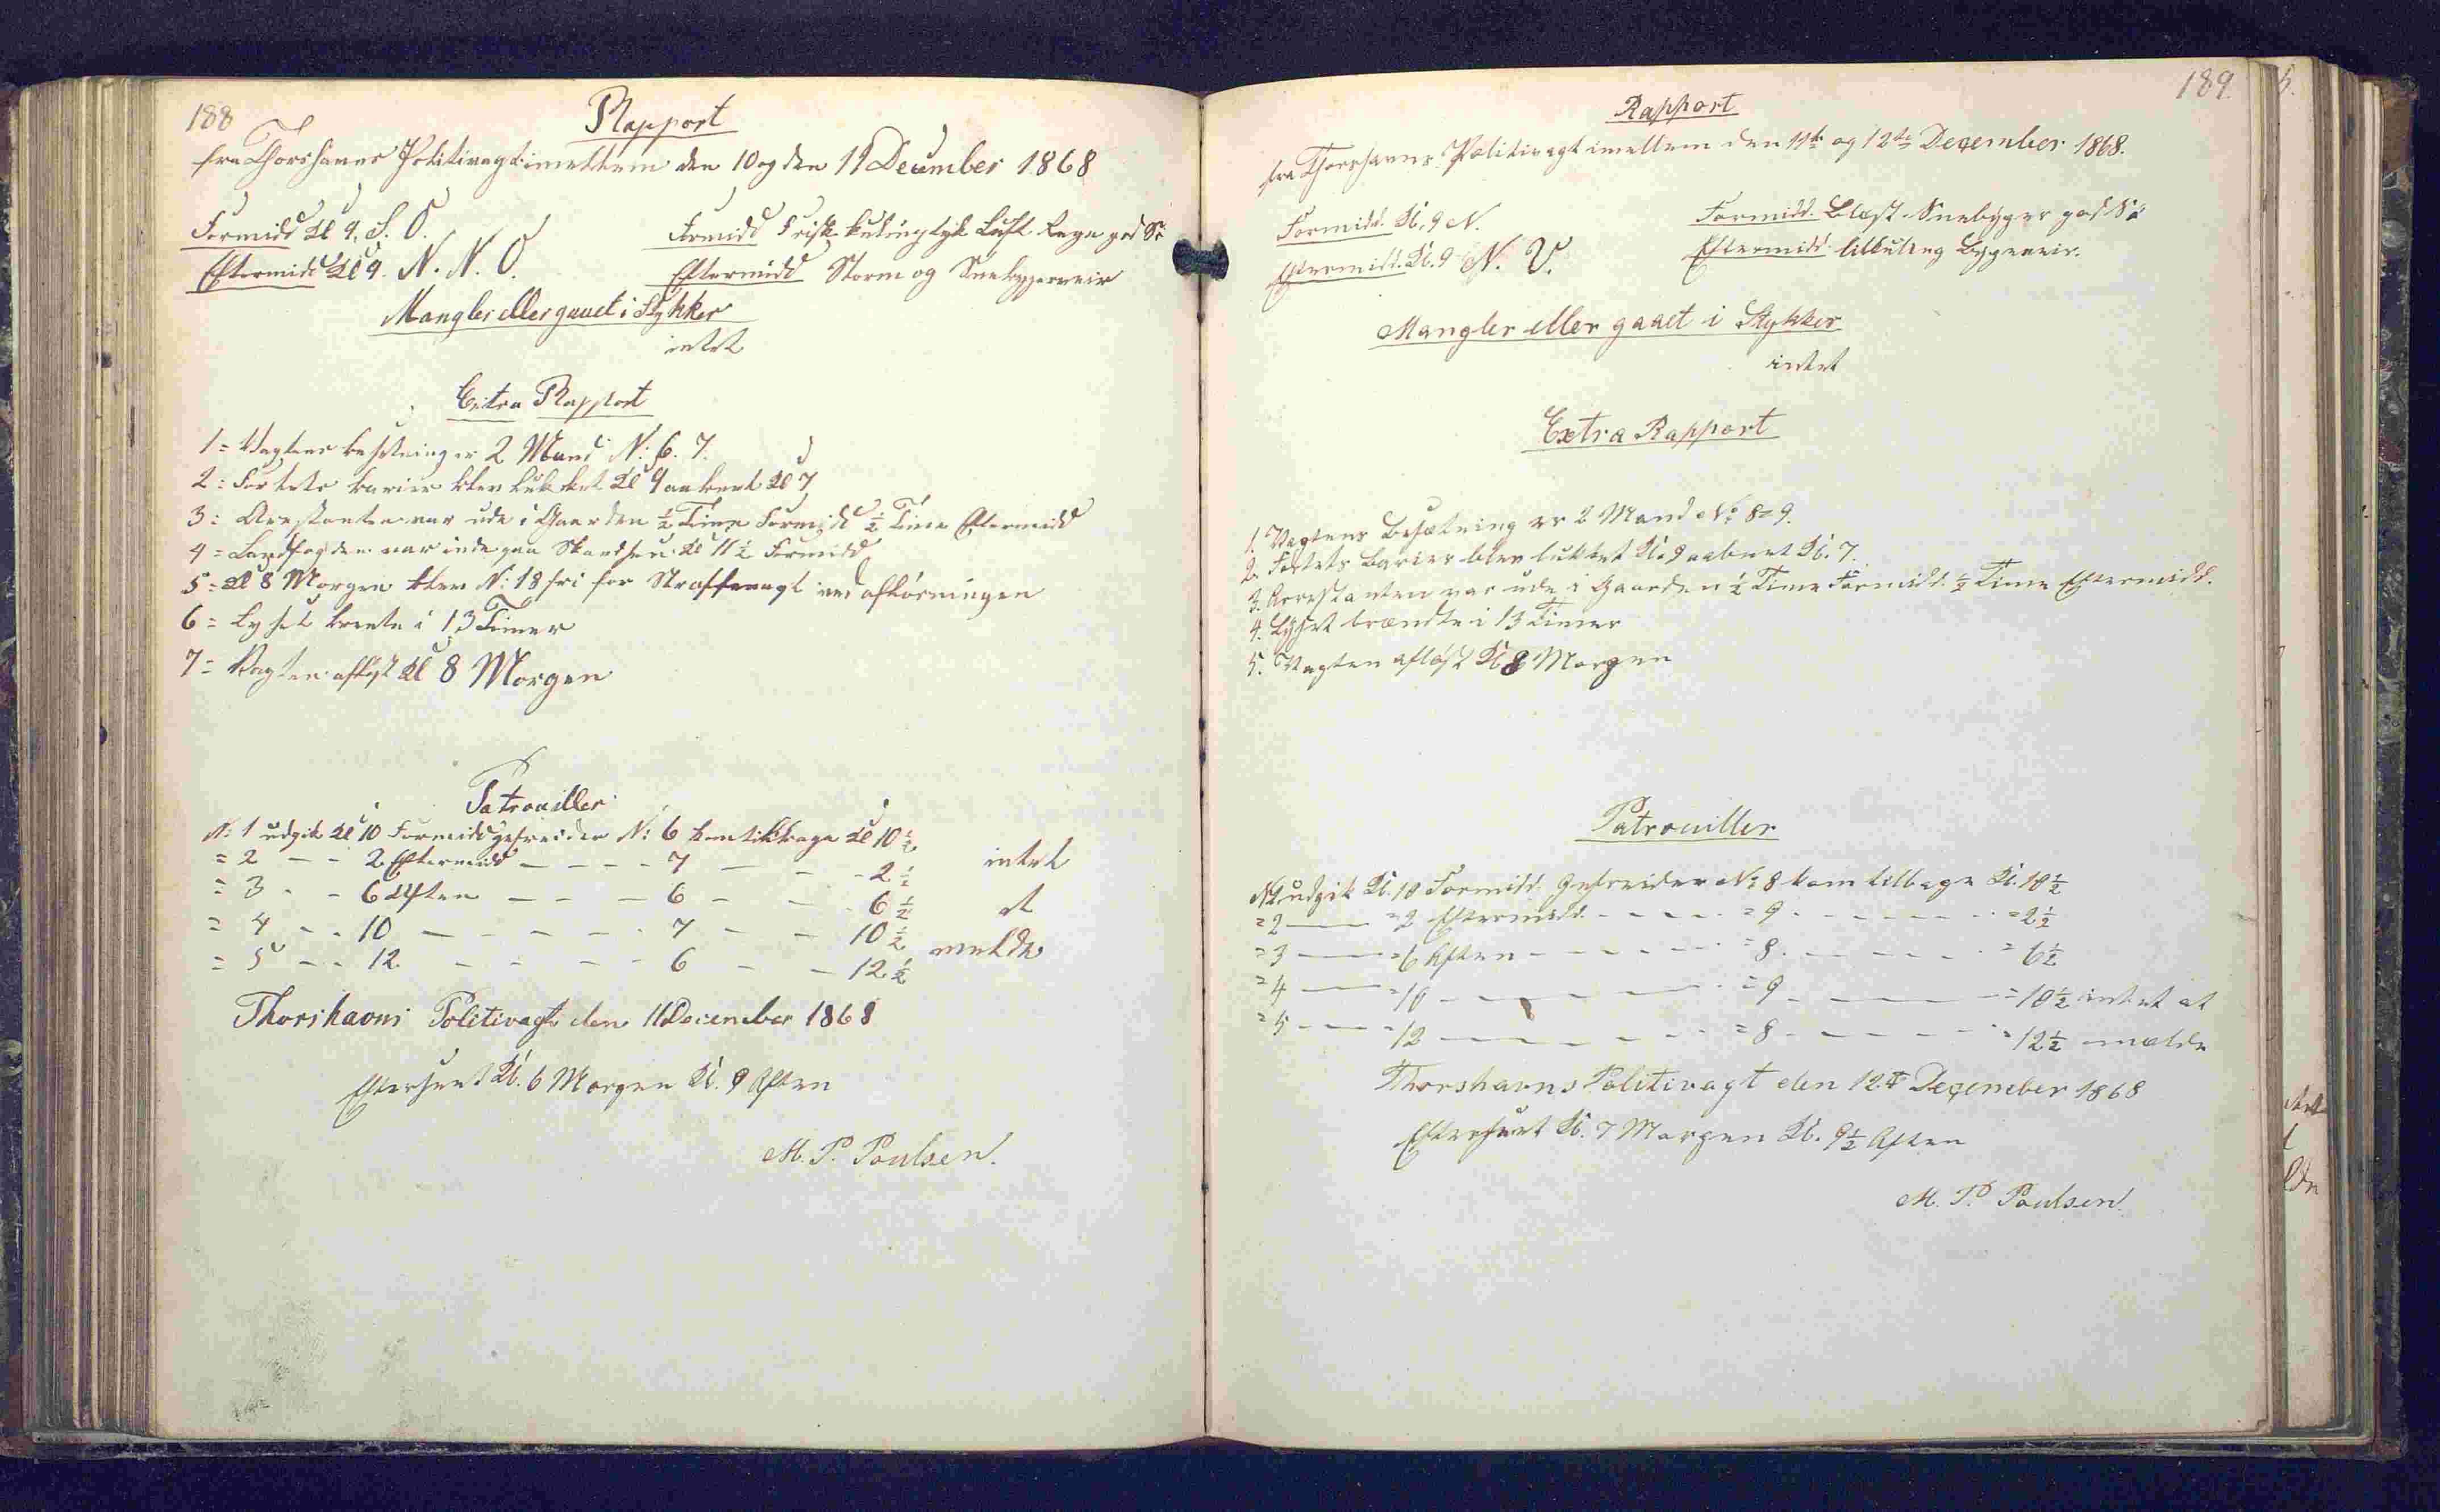 188
Rapport
fra Thorshavns Politivagt imellem den 10 og den 11 December 1868
Formidd Kl 9. S. O.
Eftermidd Kl 9. N. N. O.
Formidd Frisk kuling tyk Luft Regn god Sø
Eftermidd Storm og Sneebygerveir
Mangler eller gaaet i Stykker
intet
Extra Rapport
1 = Vagtens besetning er 2 Mand N: 6. 7.
2 = Fortets barier blev lukket Kl 9 aabent Kl 7
3 = Arrestanten var ude i Gaarden ½ Time Formidd ½ Time Eftermidd
4 = Landfogden var inde paa Skandsen Kl 11½ Formidd
5 = Kl 8 Morgen blev N: 18 fri for Straffevagt ved afløsningen
6 = Lyset brente i 13 Timer
7 = Vagten afløst Kl 8 Morgen
Patrouiller
N: 1 udgik Kl 10 Formidd gefreider N: 6 kom tilbage Kl 10½
= 2 - - 2 Eftermidd - - - - 7 - - - 2½ intet
= 3 - - 6 Aften - - - 6 - - 6½ at
= 4 - - 10 - - - - - 7 - - 10½ melde
= 5 - - 12 - - - - 6 - - 12½
Thorshavns Politivagt den 11 December 1868
Efterseet Kl. 6 Morgen Kl. 9 Aften
M. P. Poulsen.
189.
Rapport
fra Thorshavns Politivagt imellem den 11te og 12te December 1868.
Formidd. Kl. 9 N.
Eftermidd. Kl. 9 N. V.
Formidd. Blæst Sneebyger god Sø
Eftermidd. lit kuling Bygeveir.
Mangler eller gaaet i Stykker
intet
Extra Rapport
1. Vagtens Besætning er 2 Mand No 8 = 9.
2. Fortets Barier blev lukket Kl. 9 aabnet Kl. 7.
3. Arrestanten var ude i Gaarden ½ Time Formidd. ½ Time Eftermidd.
4. Lyset brændte i 13 Timer
5. Vagten afløst Kl 8 Morgen
Patrouiller
No 1 udgik Kl. 10 Formidd. Gefreider No 8 kom tilbage Kl. 10½
= 2 — = 2 Eftermidd. - - - - = 9 - - - - - = 2½
= 3 — = 6 Aften - - - - - = 8. - - - - - = 6½
= 4 — = 10 - - - - - = 9 - - - - = 10½ intet at
= 5 - - - = 12 - - - - - = 8 - - - - - = 12½ melde
Thorshavns Politivagt den 12te December 1868
Efterseet Kl. 7 Morgen Kl. 9½ Aften
M. P. Poulsen